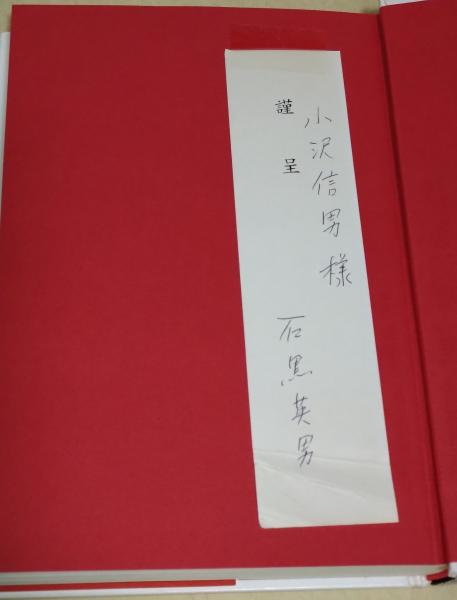 小沢信男様
謹呈
石黒英男